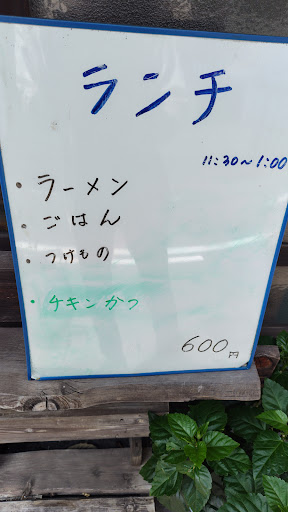 ランチ
11:30～1:00
・ラーメン
・ごはん
・つけもの
・チキンかつ
600円